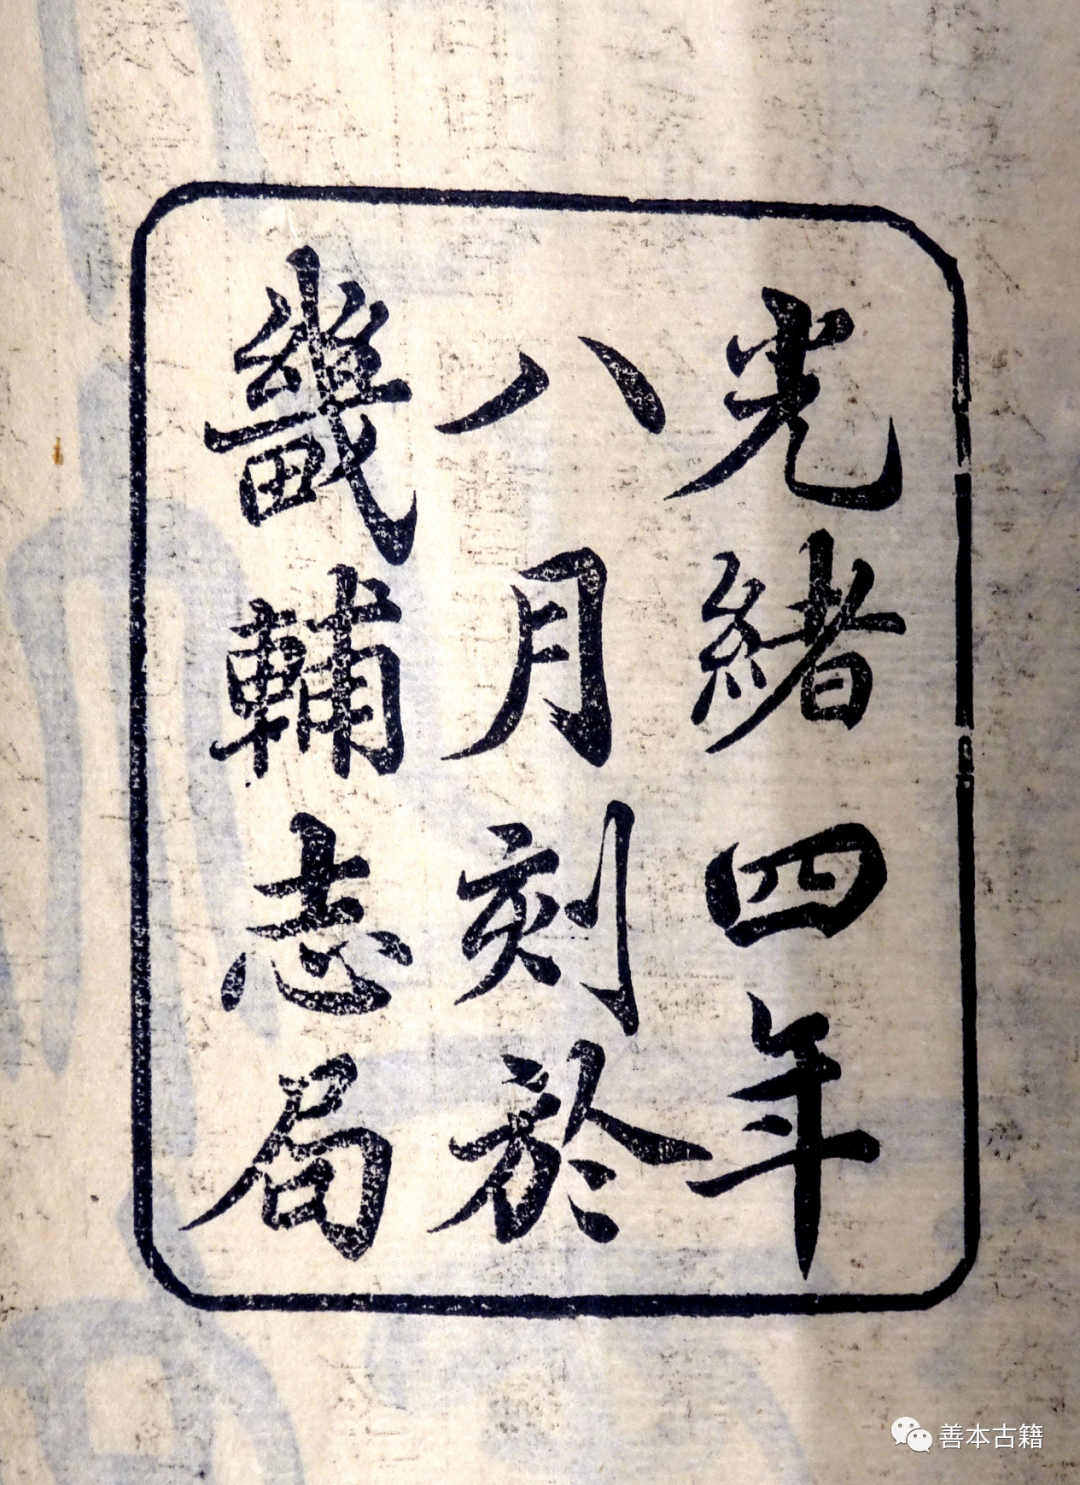 光緒四年
八月刻於
畿輔志局
善本古籍